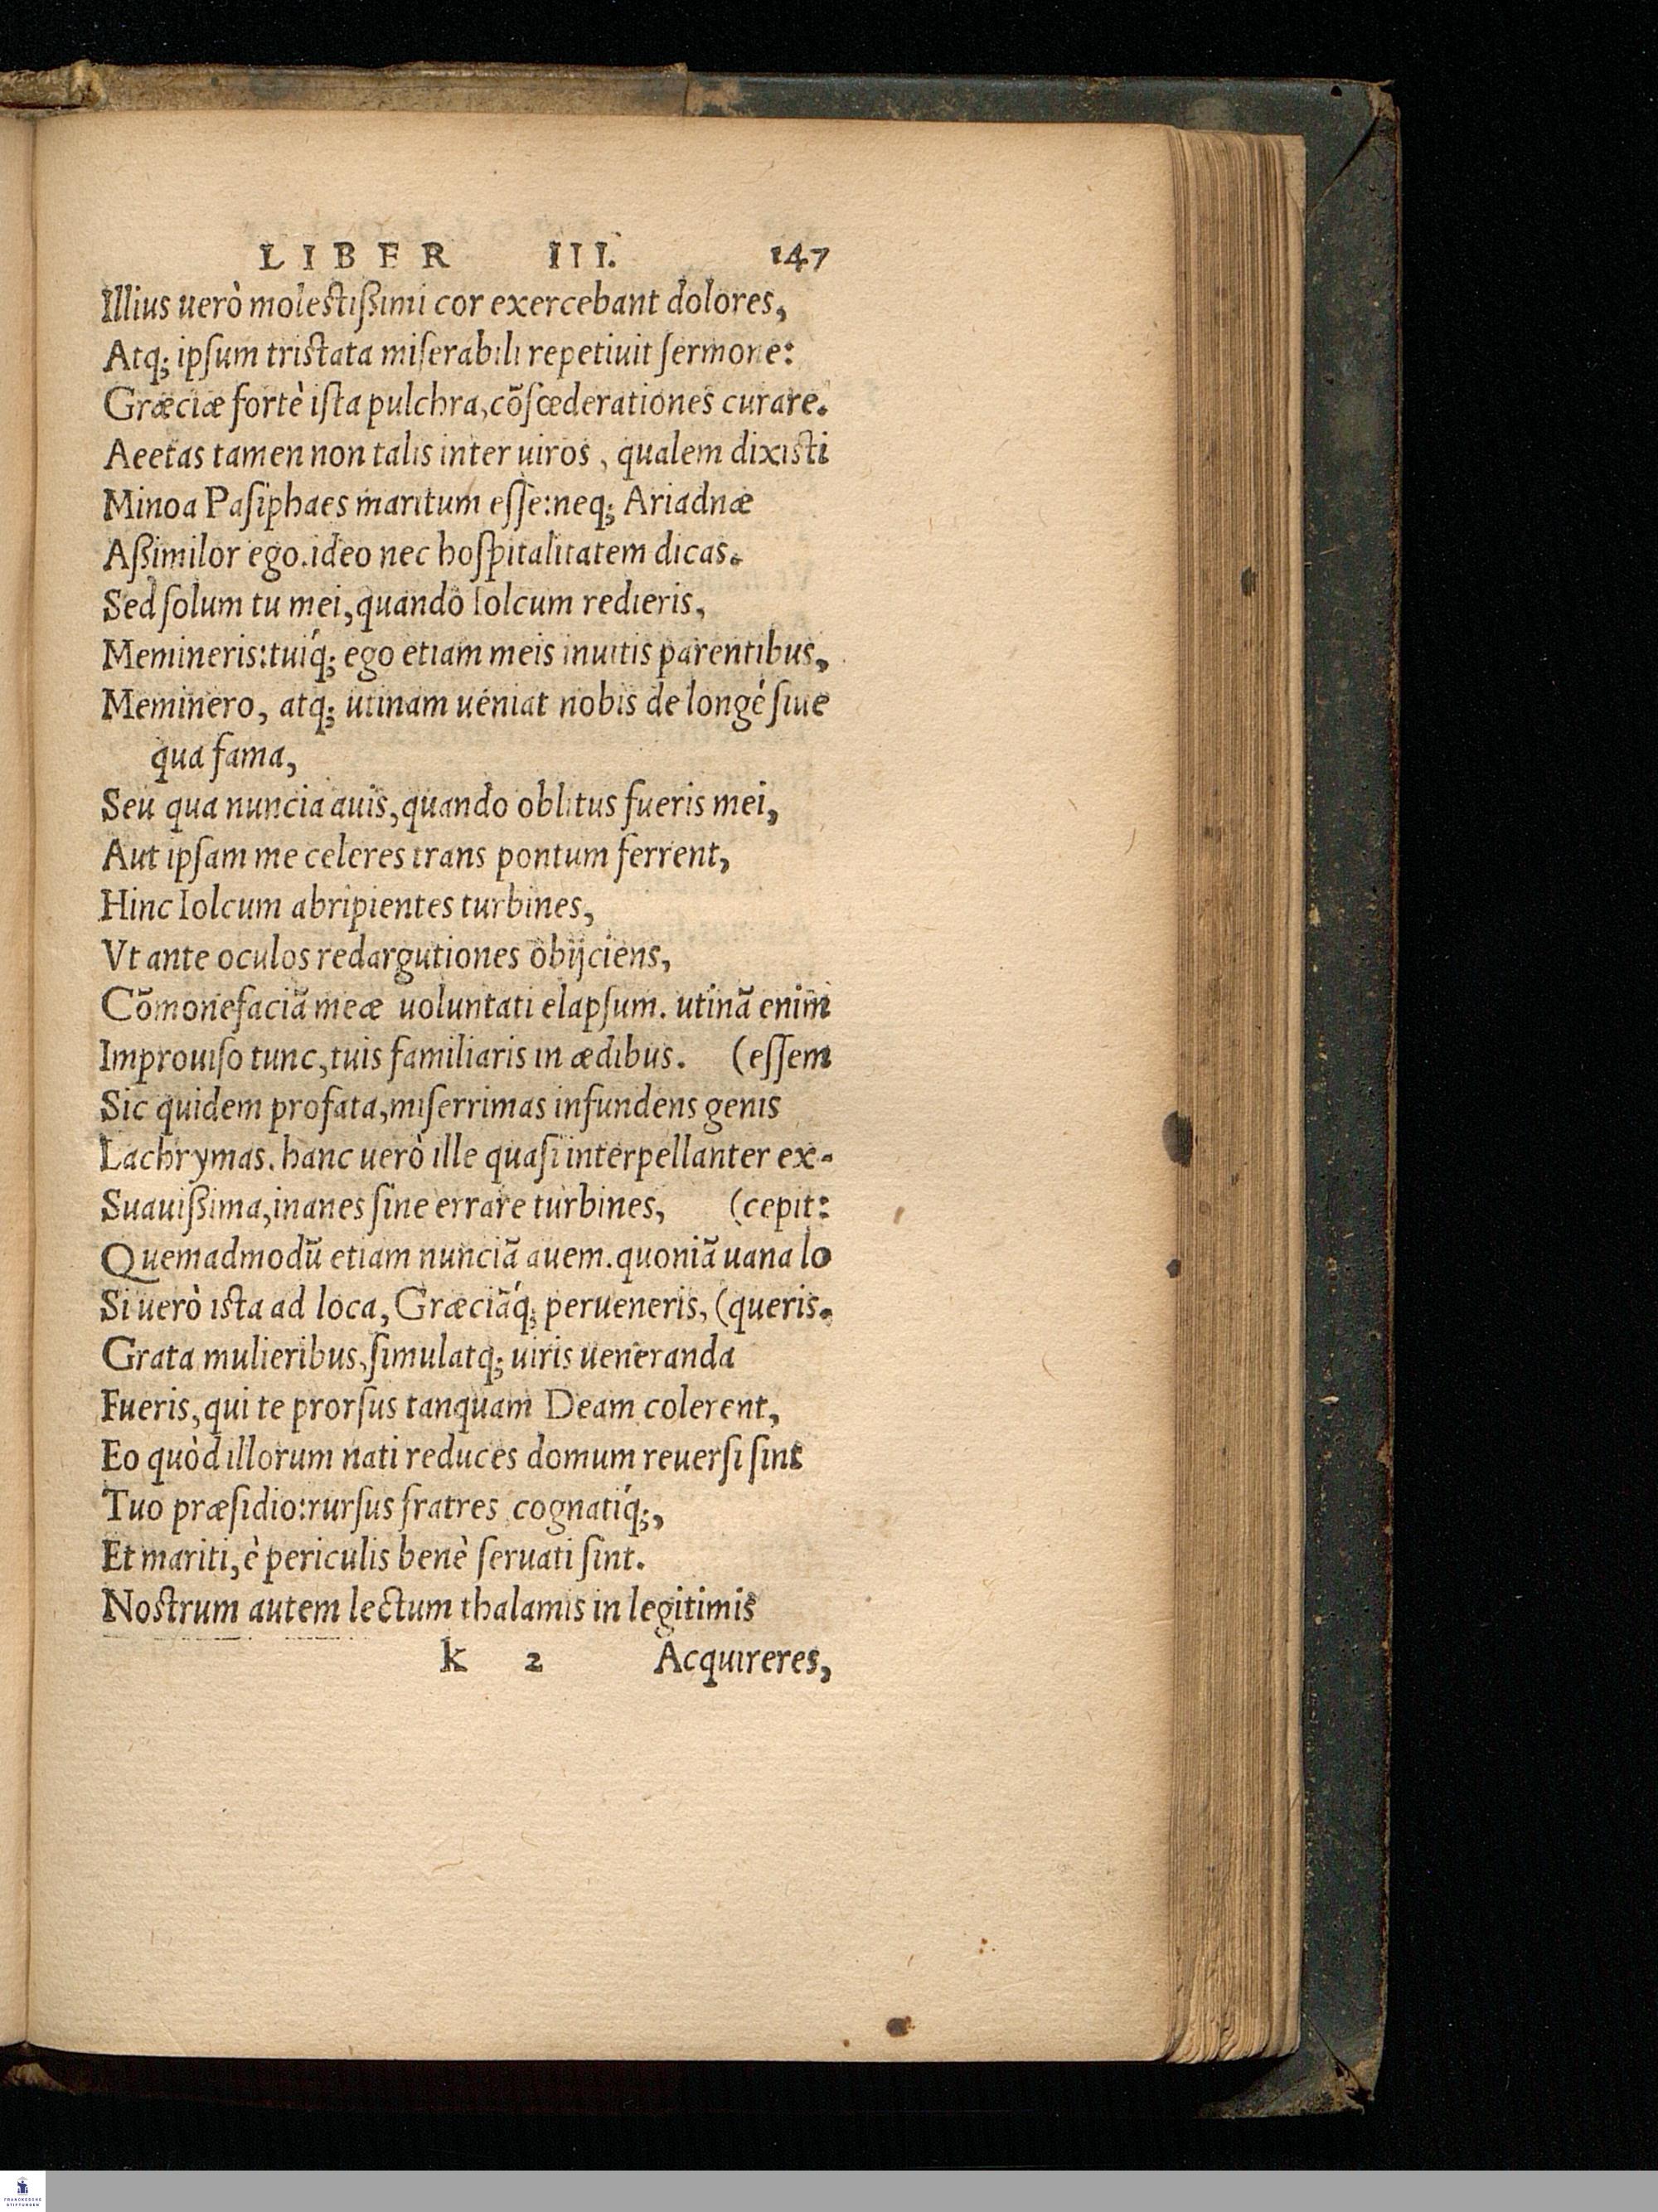 LIBER III. 147
Illius uerò molestißimi cor exercebant dolores,
Atq; ipſum tristata miſerabili repetiuit ſermone:
Græciæ fortè iſta pulchra, cõfœderationes curare.
Aeetas tamen non talis inter uiros, qualem dixisti
Minoa Paſiphaes maritum eſſe: neq; Ariadnæ
Aßimilor ego. ideo nec hoſpitalitatem dicas.
Sed ſolum tu mei, quando Iolcum redieris,
Memineris: tuiq́; ego etiam meis inuitis parentibus,
Meminero, atq; utinam ueniat nobis de longè ſiue
qua fama,
Seu qua nuncia auis, quando oblitus fueris mei,
Aut ipſam me celeres trans pontum ferrent,
Hinc Iolcum abripientes turbines,
Vt ante oculos redargutiones obijciens,
Cõmonefaciã meæ uoluntati elapſum. utinã enim
Improuiſo tunc, tuis familiaris in ædibus. (eſſem
Sic quidem profata, miſerrimas infundens genis
Lachrymas. hanc uerò ille quaſi interpellanter ex-
Suauißima, inanes ſine errare turbines, (cepit:
Quemadmodũ etiam nunciã auem. quoniã uana lo
Si uerò ista ad loca, Græciãq́; perueneris, (queris.
Grata mulieribus, ſimulatq; uiris ueneranda
Fueris, qui te prorſus tanquam Deam colerent,
Eo quòd illorum nati reduces domum reuerſi ſint
Tuo præſidio: rurſus fratres cognatiq́;,
Et mariti, è periculis benè ſeruati ſint.
Nostrum autem lectum thalamis in legitimis
k 2 Acquireres,
FRANCKESCHE
STIFTUNGEN